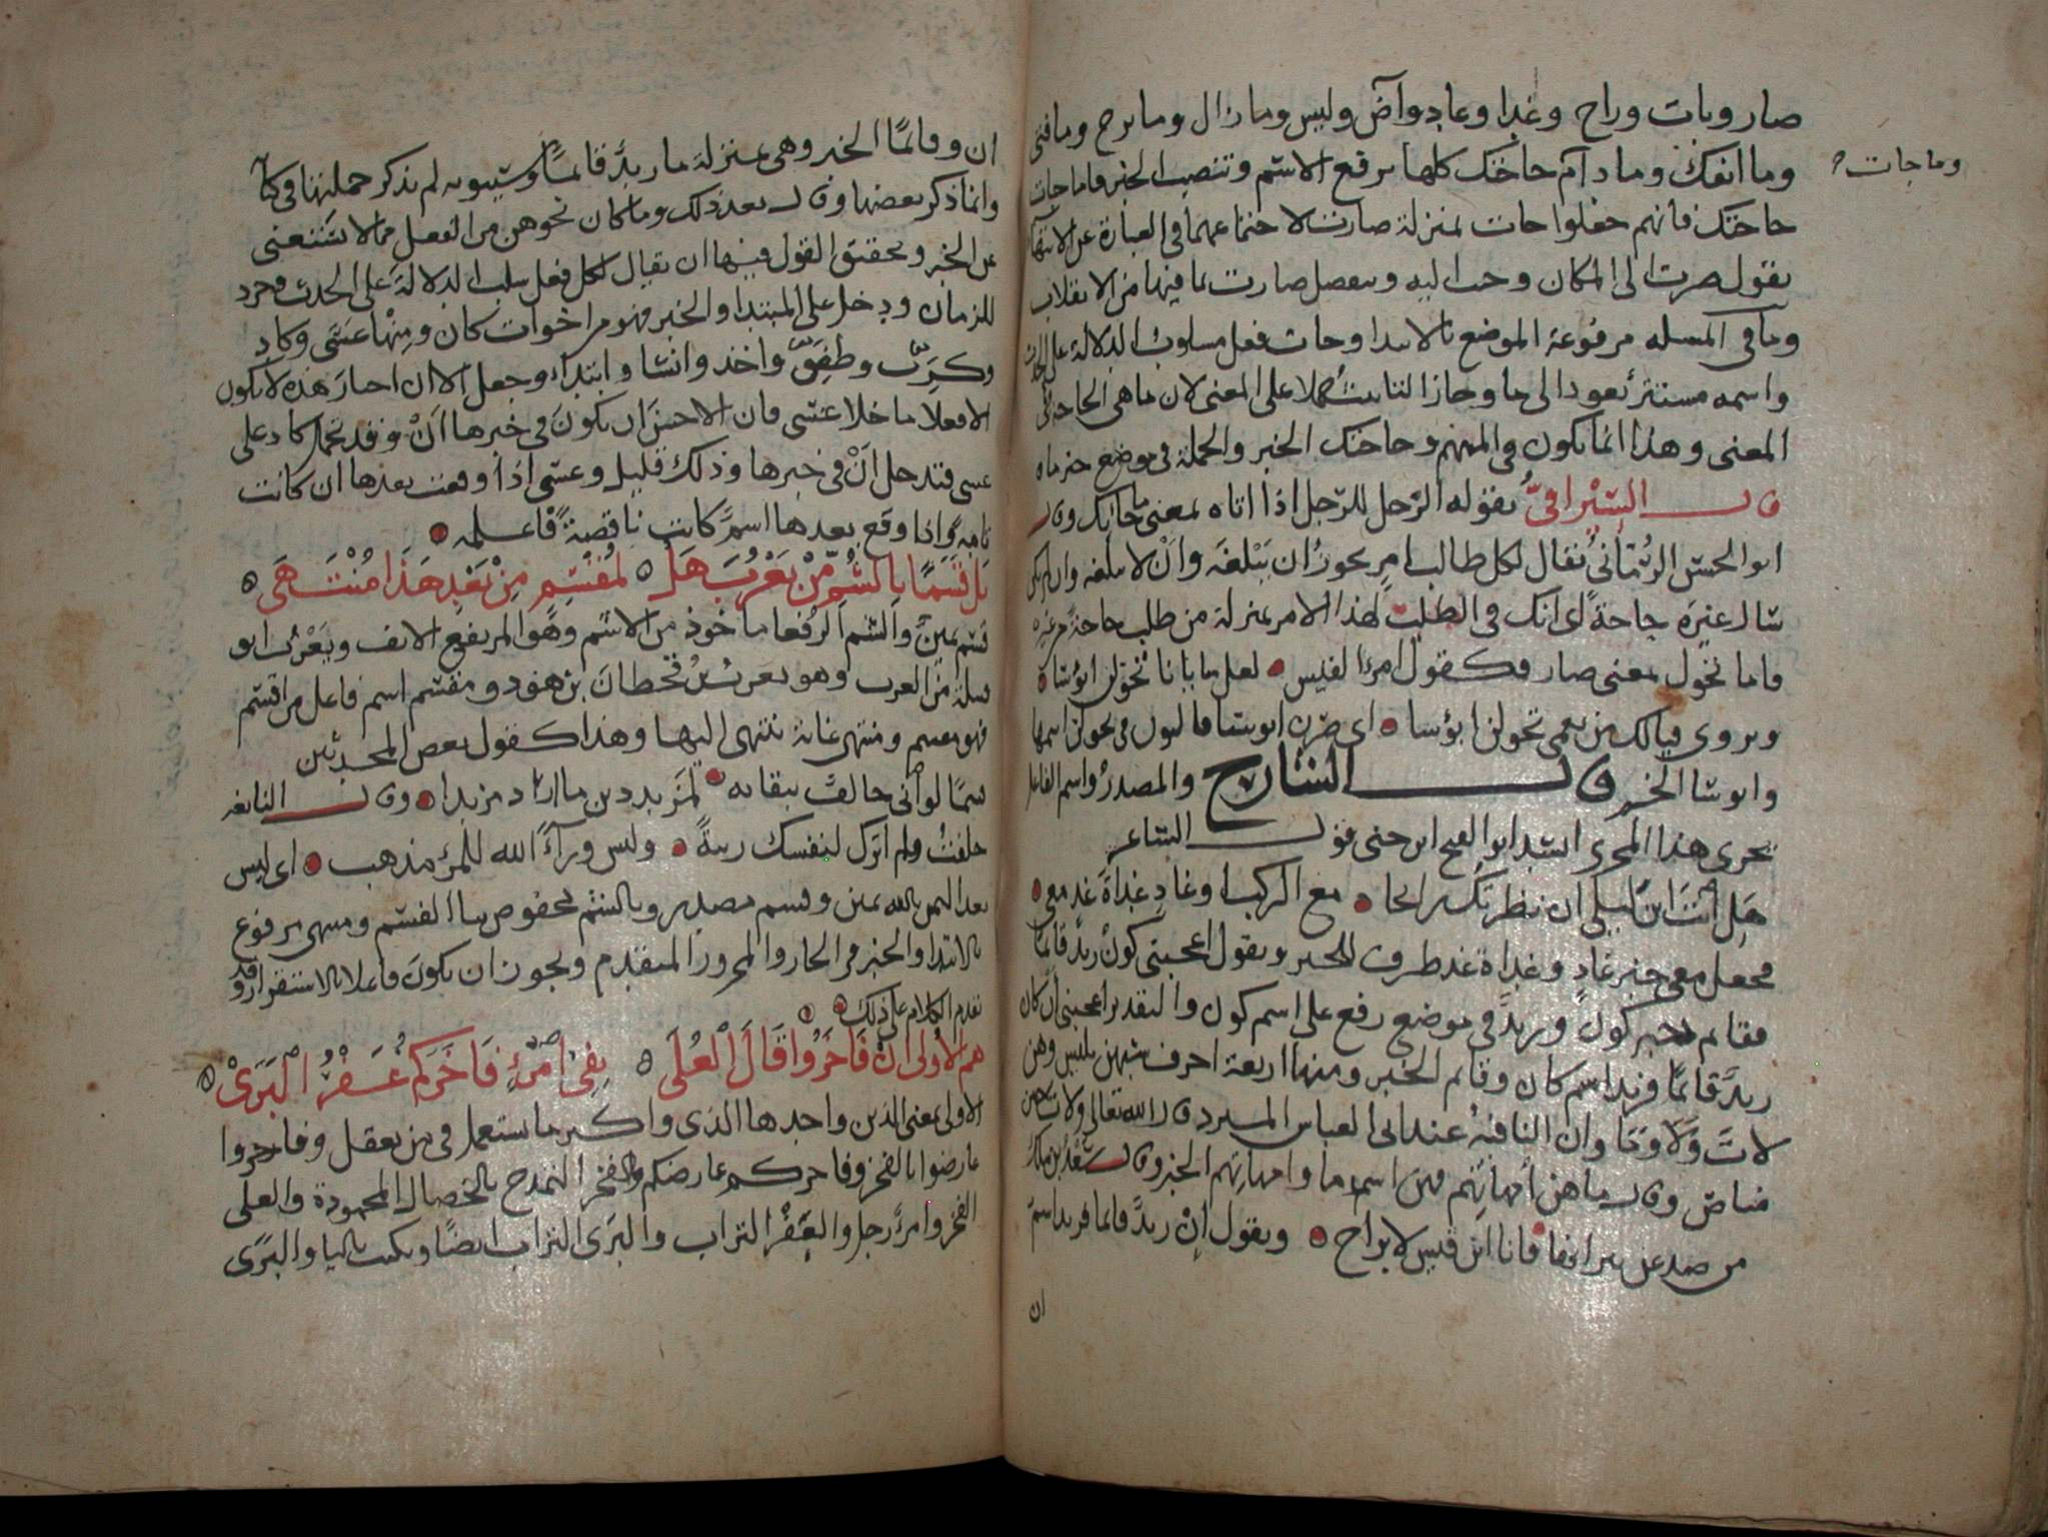 صار وبات وراح وغدا وعاد وآض وليس وما زال وما برح وما فتئ
وما انفك وما دام كلها ترفع الاسم وتنصب الخبر فاما جات
وما جات
حاجتك فانهم جعلوا جات بمنزلة صارت لاجتماعهما في العبارة عن الانتها
تقول صرت الى المكان وجت اليه وتنفصل صارت بما فيها من الانقلاب
وما في المسله مرفوعة الموضع بالابتدا وجات فعل مسلوب الدلالة على الحدث
واسمه مستتر يعود الى ما وجاز التانيث حملا على المعنى لان ما هي الحاجة في
المعنى وهذا انما يكون في المبهم وحاجتك الخبر والجملة في موضع خبر ما
قال السيرافي يقوله الرجل للرجل اذا اتاه بمعنى ما جا بك وقال
ابو الحسن الرماني يقال لكل طالب امر يجوز ان يبلغه وان لا يبلغه
من طلب حاجة
فاما تحول بمعنى صار فكقول امرئ القيس لعل منايانا تحولن ابؤسا
ويروى فيالك من نعمى تحولن ابؤسا اي صرن ابوسا فالنون في تحولن اسمها
وابوسا الخبر قال الشارح والمصدر واسم الفاعل
يجري هذا المجرى انشد ابو الفتح ابن جنى قول الشاعر
هل انت ابن ليلى ان نظرتك رايح مع الركب او غاد غداة غد معي
فجعل معي خبر غاد وغداة غد ظرف للخبر وتقول اعجبني كون زيد قائما
فقايم خبر كون وزيد في موضع رفع على اسم كون والتقدير اعجبني ان كان
زيد قائما فزيد اسم كان وقايم الخبر ومنها اربعة احرف شبهن بليس وهن
لات ولا وما وان النافية عند ابي العباس المبرد قال الله تعالى ولات حين
مناص وقال ما هن أمهاتهم فهن اسم ما وامهاتهم الخبر وقال سعد بن ملك
من صد عن نيرانها فانا ابن قيس لا براح وتقول إن زيد قائما فزيد اسم
ان
ان وقائما الخبر وهي بمنزلة ما زيد قائما وسيبويه لم يذكر جملتها في كتا
وانما ذكر بعضها وقال بعد ذلك وما كان نحوهن من الفعل مما لا يستغنى
عن الخبر وتحقيق القول فيها ان يقال لكل فعل سلب الدلالة على الحدث وجرد
للزمان ودخل على المبتدا والخبر فهو من اخوات كان ومنها عسى وكاد
وكرب وطفق واخذ وانشا وابتدا وجعل الا ان اخبار هذه لا يكون
الا فعلا ما خلا عسى فان الاحسن ان يكون في خبرها أن وقد تحمل كاد على
عسى فتدخل أن في خبرها وذلك قليل وعسى اذا وقعت بعدها ان كانت
تامة واذا وقع بعدها اسم كانت ناقصة فاعلمه
بل قسما بالشم من يعرب هل لمقسم من بعد هذا منتهى
قسم يمين والشم الرفعا ماخوذ من الاشم وهو المرتفع الانف ويعرب ابو
قبيلة من العرب وهو يعرب بن قحطان بن هود ومقسم اسم فاعل من اقسم
فهو مقسم ومنتهى غاية ينتهى اليها وهذا كقول بعض المحدثين
قسما لو أنى حالف ببقائه لمزيد دين ما اراد مزيدا وقال النابغه
حلفت ولم اترك لنفسك ريبة وليس ورآء الله للمرء مذهب اي ليس
بعد اليمين بالله يمين وقسم مصدر وبالشم مخفوض ببا القسم ومنتهى مرفوع
بالابتدا والخبر في الجار والمجرور المتقدم ويجوز ان يكون فاعلا بالاستقرار وقد
تقدم الكلام على ذلك
هم الاولى ان فاخروا قال العلى بفي امرئ فاخركم عفر البرى
الاولى بمعنى الذين واحدها الذي واكثر ما يستعمل في من يعقل وفاخروا
عارضوا بالفخر وفاخركم عارضكم والفخر التمدح بالخصال المحمودة والعلى
الفخر وامرؤ رجل والعفر التراب والبرى التراب ايضا ويكتب باليا والبرى